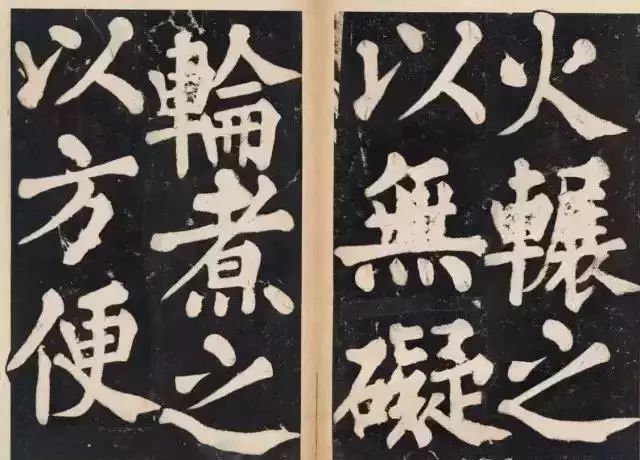 火輾之
以無礙
輪煮之
以方便